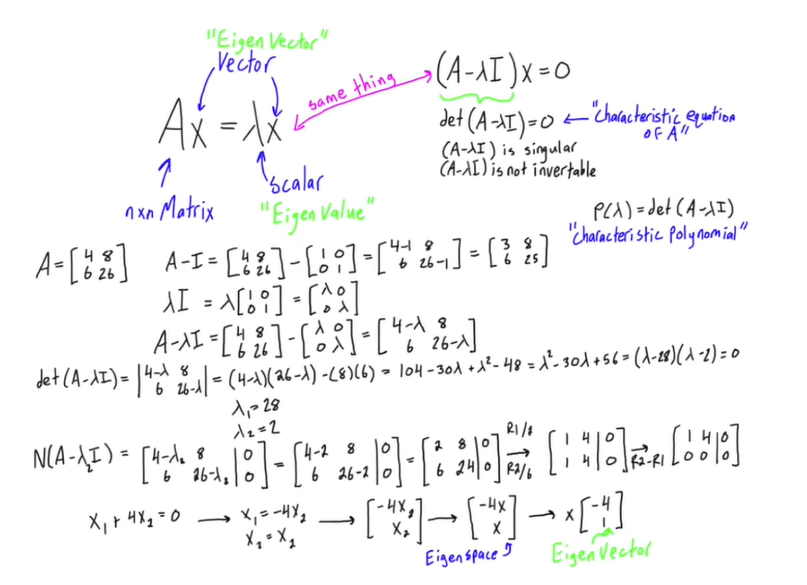 "Eigen Vector"
Vector
Ax = λx
same thing
(A-λI)x=0
det(A-λI)=0 ← "characteristic equation of A"
(A-λI) is singular
(A-λI) is not invertable
nxn Matrix
scalar
"Eigen Value"
P(λ)=det(A-λI)
"Characteristic Polynomial"
A=[4 8; 6 26] A-I=[4 8; 6 26]-[1 0; 0 1]=[4-1 8; 6 26-1]=[3 8; 6 25]
λI = λ[1 0; 0 1]=[λ 0; 0 λ]
A-λI=[4 8; 6 26]-[λ 0; 0 λ]=[4-λ 8; 6 26-λ]
det(A-λI)=|4-λ 8; 6 26-λ|=(4-λ)(26-λ)-(8)(6)=104-30λ+λ²-48=λ²-30λ+56=(λ-28)(λ-2)=0
λ₁=28
λ₂=2
N(A-λ₂I)=[4-λ₂ 8|0; 6 26-λ₂|0]=[4-2 8|0; 6 26-2|0]=[2 8|0; 6 24|0] R1/2 → R2/6 [1 4|0; 1 4|0] → R2-R1 [1 4|0; 0 0|0]
x₁+4x₂=0 → x₁=-4x₂ x₂=x₂ → [-4x₂; x₂] → [-4x; x] → x[-4; 1]
Eigenspace
Eigen Vector